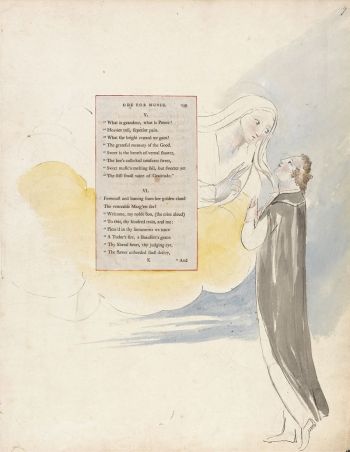 ODE FOR MUSIC.
V.
" What is grandeur, what is Power?
" Heavier toil, superior pain.
" What the bright reward we gain?
" The grateful memory of the Good.
" Sweet is the breath of vernal shower,
" The bee's collected treasures sweet,
" Sweet music's melting fall, but sweeter yet
" The still small voice of Gratitude."
VI.
Foremost and leaning from her golden cloud
The venerable Marg'ret see!
" Welcome, my noble Son, (she cries aloud)
" To this, thy kindred train, and me:
" Pleas'd in thy lineaments we trace
" A Tudor's fire, a Beaufort's grace.
" Thy liberal heart, thy judging eye,
" The flower unheeded shall descry,
K " And